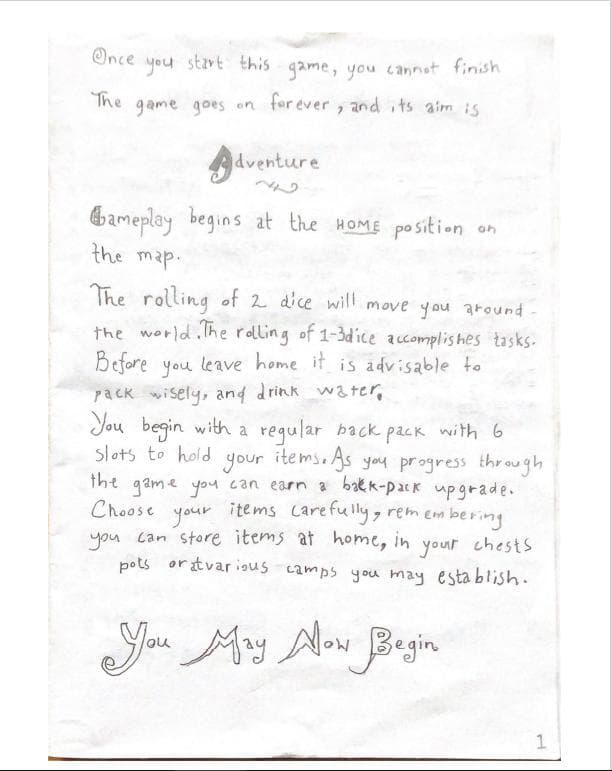 Once you start this game, you cannot finish
The game goes on forever, and its aim is
Adventure
Gameplay begins at the HOME position on
the map.
The rolling of 2 dice will move you around
the world. The rolling of 1-3 dice accomplishes tasks.
Before you leave home it is advisable to
pack wisely, and drink water.
You begin with a regular back pack with 6
slots to hold your items. As you progress through
the game you can earn a back-pack upgrade.
Choose your items carefully, remembering
you can store items at home, in your chests
pots or at various camps you may establish.
You May Now Begin
1